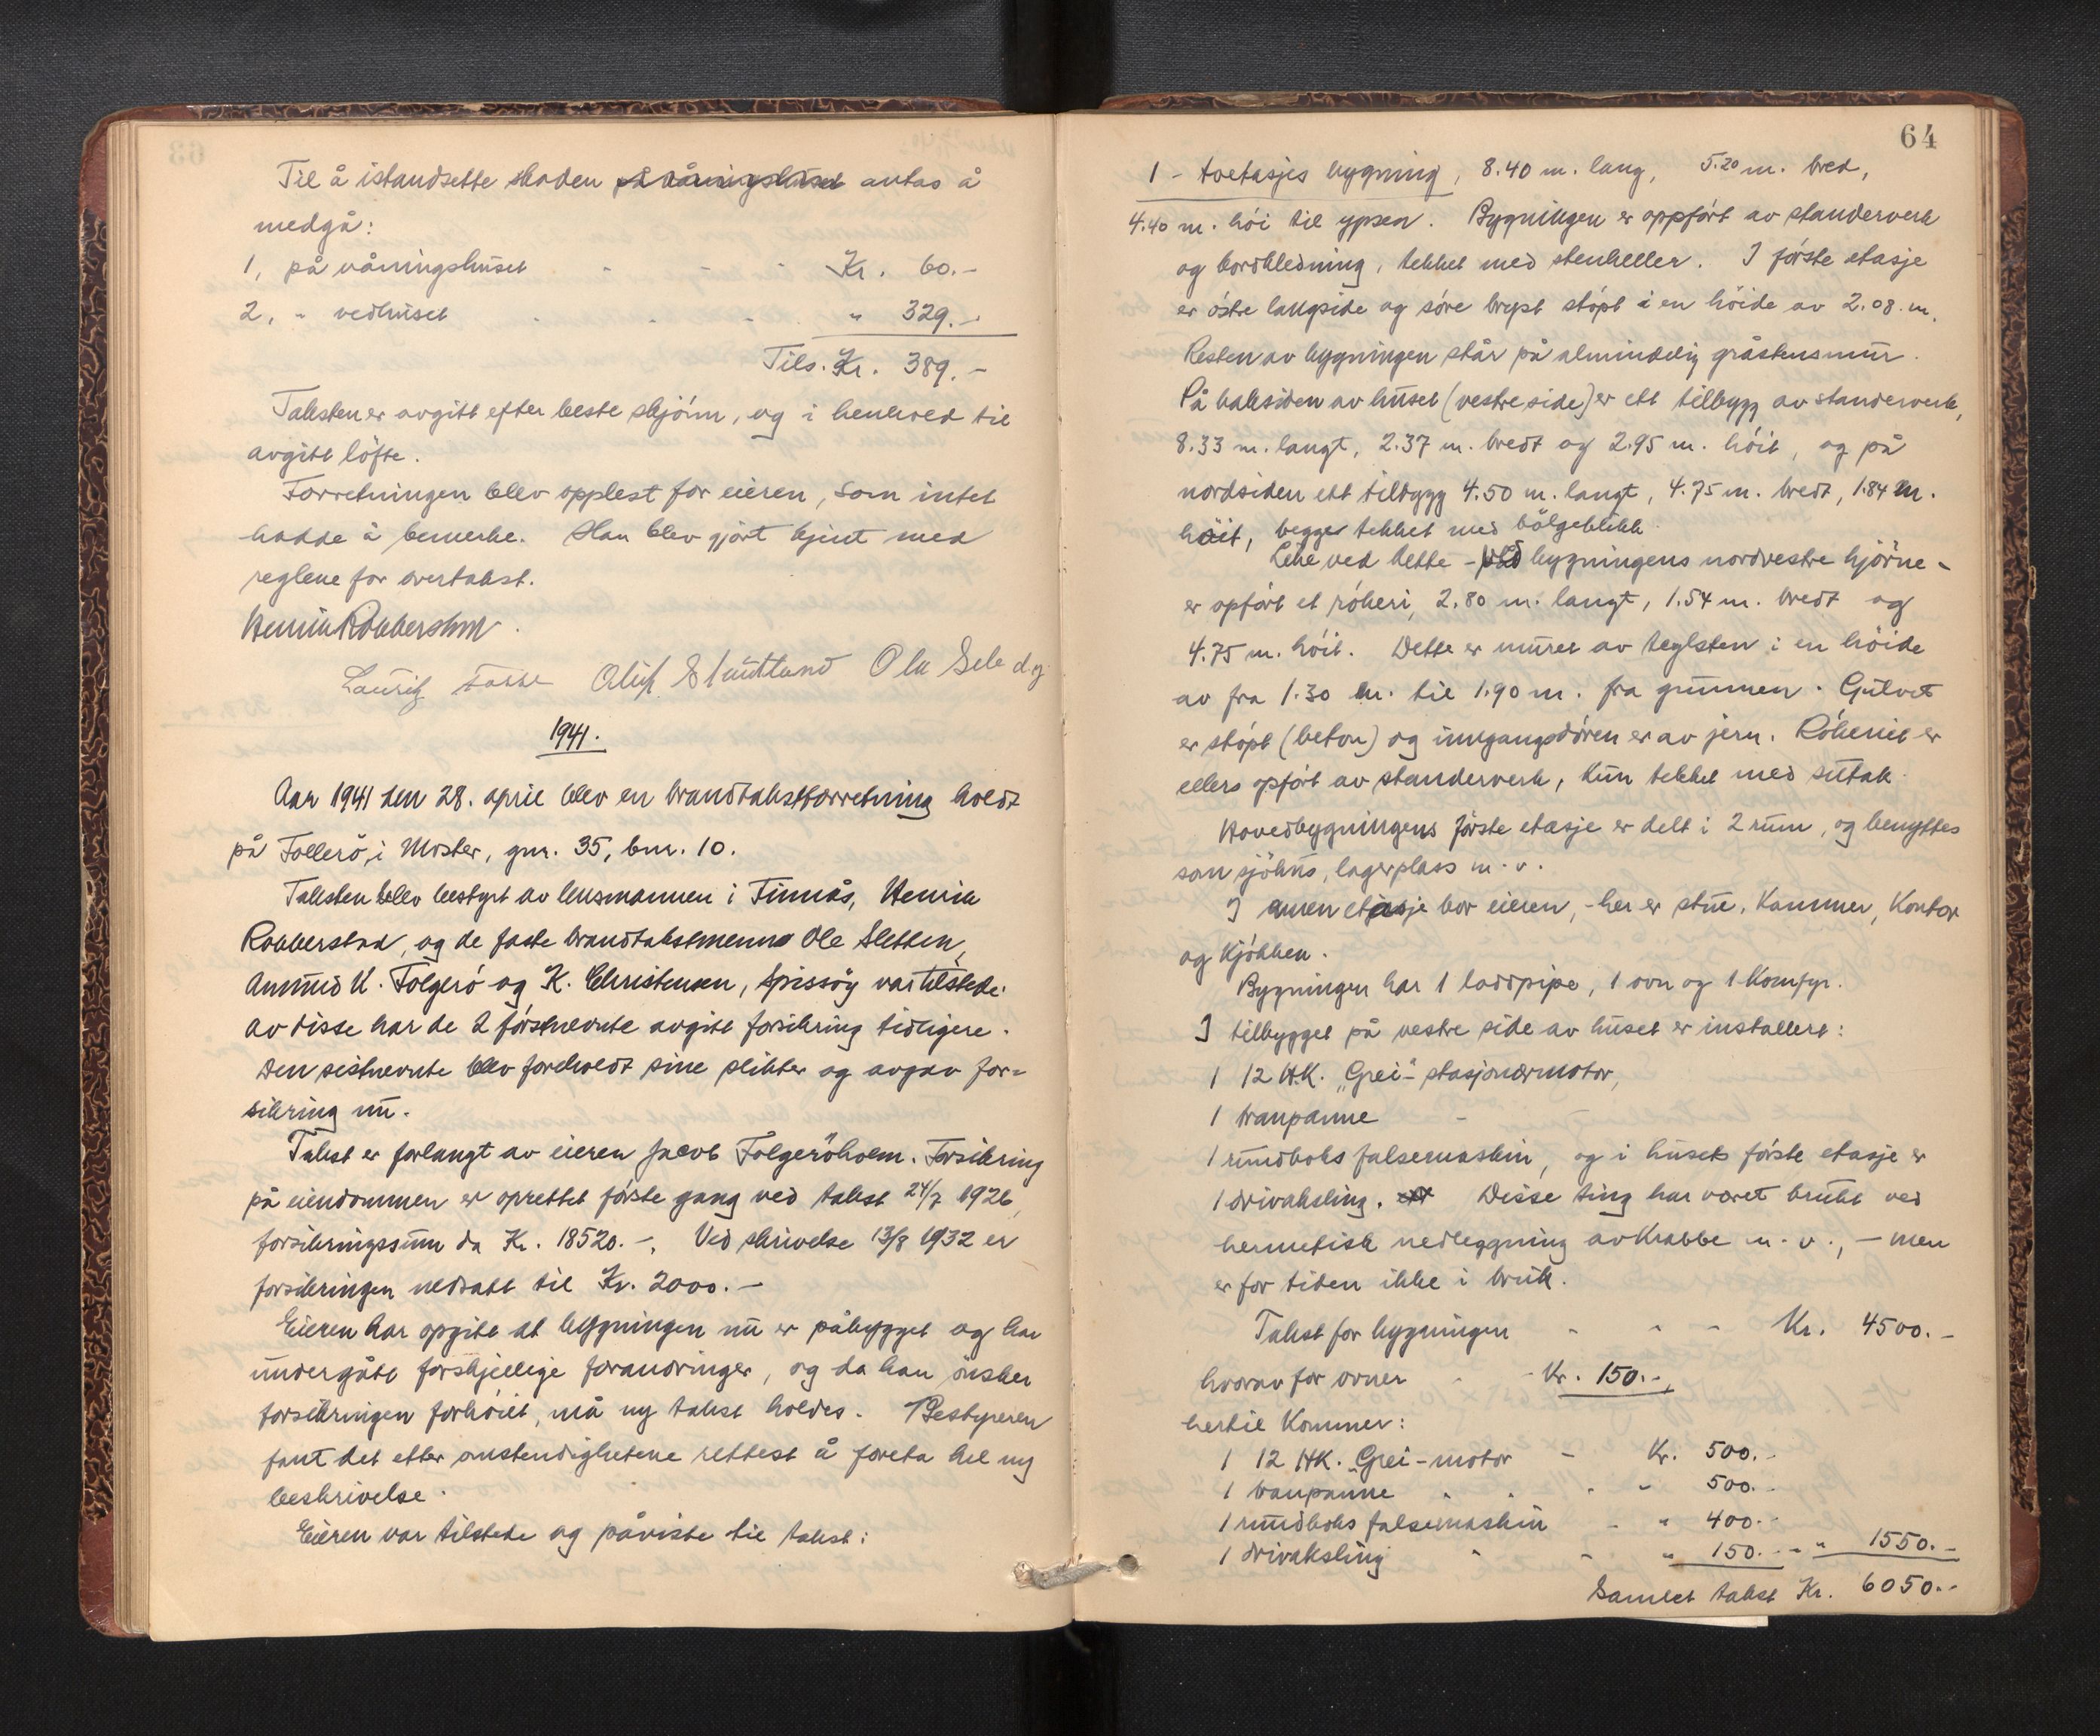 Til å istandsette skaden på våningshuset antas å
medgå:
1, på våningshuset - - - Kr. 60.-
2, " vedhuset . . . " 329.-
Tils. Kr. 389.-
Taksten er avgitt efter beste skjónn, og i henhold til
avgitt löfte.
Forretningen blev opplest for eieren, som intet
hadde å bemerke. Han blev gjórt kjent med
reglene for overtakst.
Henrik Robberstad.
Lauritz Olaf Ola
1941.
Aar 1941 den 28. april blev en brandtakstforretning holdt
på Follerö, i Moster, gnr. 35, bnr. 10.
Taksten blev bestyrt av lensmannen i Finnås, Henrik
Robberstad, og de faste brandtakstmenn Ole Sletten,
Ammund K. Folgeró og K. Christensen, Spissöy var tilstede.
Av disse har de 2 fórstnevnte avgitt forsikring tidligere.
Den sistnevnte blev foreholdt sine plikter og avgav for=
sikring nu.
Takst er forlangt av eieren Jacob Folgeröholm. Forsikring
på eiendommen er oprettet fórste gang ved takst 24/7 1926,
forsikringssum da Kr. 18520.-. Ved skrivelse 13/8 1932 er
forsikringen nedsatt til Kr. 2000.-
Eieren har opgitt at bygningen nu er påbygget og har
undergått forskjellige forandringer, og da han önsker
forsikringen forhóiet, må ny takst holdes. Bestyreren
fant det etter omstendighetene rettest å foreta hel ny
beskrivelse.
Eieren var tilstede og påviste til takst:
64
1 - toetasjes bygning, 8.40 m. lang, 5.20 m. bred,
4.40 m. hói til ypsen. Bygningen er oppfórt av standerverk
og bordkledning, tekket med stenheller. I fórste etasje
er óstre langside og sóre bryst stópt i en höide av 2.08 m.
Resten av bygningen står på almindelig gråstensmur.
På baksiden av huset (vestre side) er ett tilbygg av standerverk,
8.33 m. langt, 2.37 m. bredt og 2.95 m. hóit, og på
nordsiden ett tilbygg 4.50 m. langt, 4.75 m. bredt, 1.84 m.
höit, begge tekket med bölgeblikk.
Like ved dette - ved bygningens nordvestre hjörne -
er opfórt et rókeri, 2.80 m. langt, 1.54 m. bredt og
4.75 m. hóit. Dette er muret av teglsten i en höide
av fra 1.30 m. til 1.90 m. fra grunnen. Gulvet
er stópt (beton) og inngangsdóren er av jern. Rókeriet er
ellers opfórt av standerverk, kun tekket med sutak.
Hovedbygningens fórste etasje er delt i 2 rum, og benyttes
som sjöhus, lagerplass m.v.
I annen etasje bor eieren, - her er stue, kammer, kontor
og kjókken.
Bygningen har 1 loddpipe, 1 ovn og 1 komfyr.
I tilbygget på vestre side av huset er installert:
1 12 H.K. "Grei"- stasjonærmotor,
1 vannpanne -
1 rundboks falsemaskin, og i husets fórste etasje er
1 drivaksling. Disse ting har været brukt ved
hermetisk nedleggning av Krabbe m.v., - men
er for tiden ikke i bruk.
Takst for bygningen - - - Kr. 4500.-
hvorav for ovner - Kr. 150.-,
hertil kommer:
1 12 HK. "Grei-motor - Kr. 500.-
1 vannpanne . . . - 500.-
1 rundboks falsemaskin - " 400.-
1 drivaksling - - " 150.- - " 1550.-
Samlet takst Kr. 6050.-